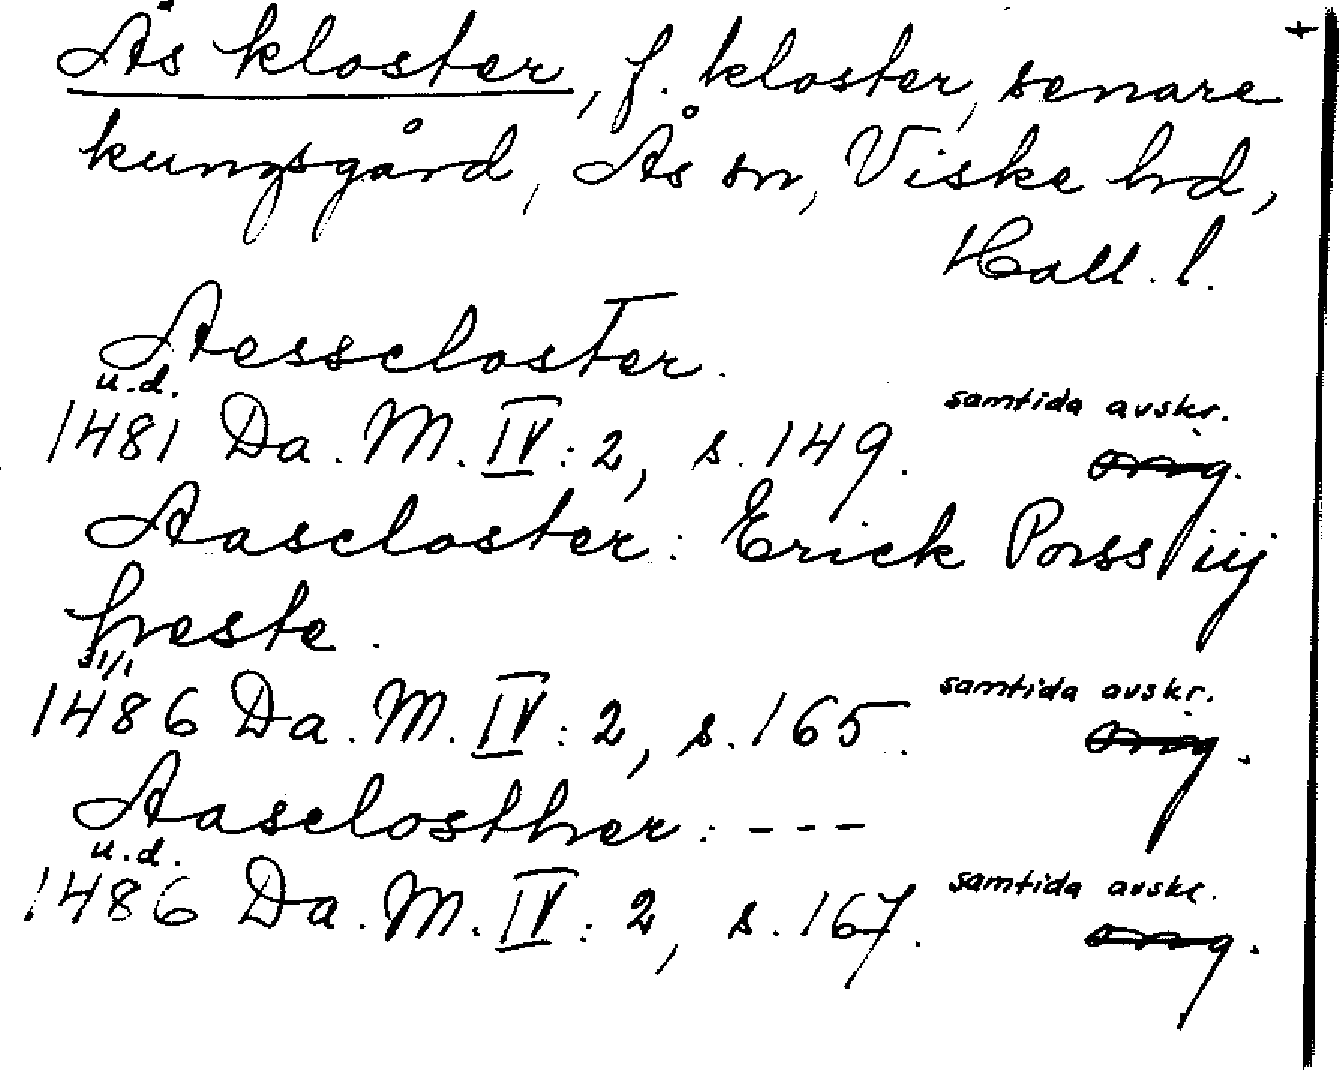 +
Ås kloster, f. kloster, senare
kungsgård, Ås sn, Viske hrd,
Hall. l.
Aesscloster.
u.d.
1481 Da. M. IV: 2, s. 149. samtida avskr.
orig.
Aascloster: Erick Porss iij
heste.
31/1
1486 Da. M. IV: 2, s. 165. samtida avskr.
orig.
Aasclosther: ---
u.d.
1486 Da. M. IV: 2, s. 167. samtida avskr.
orig.